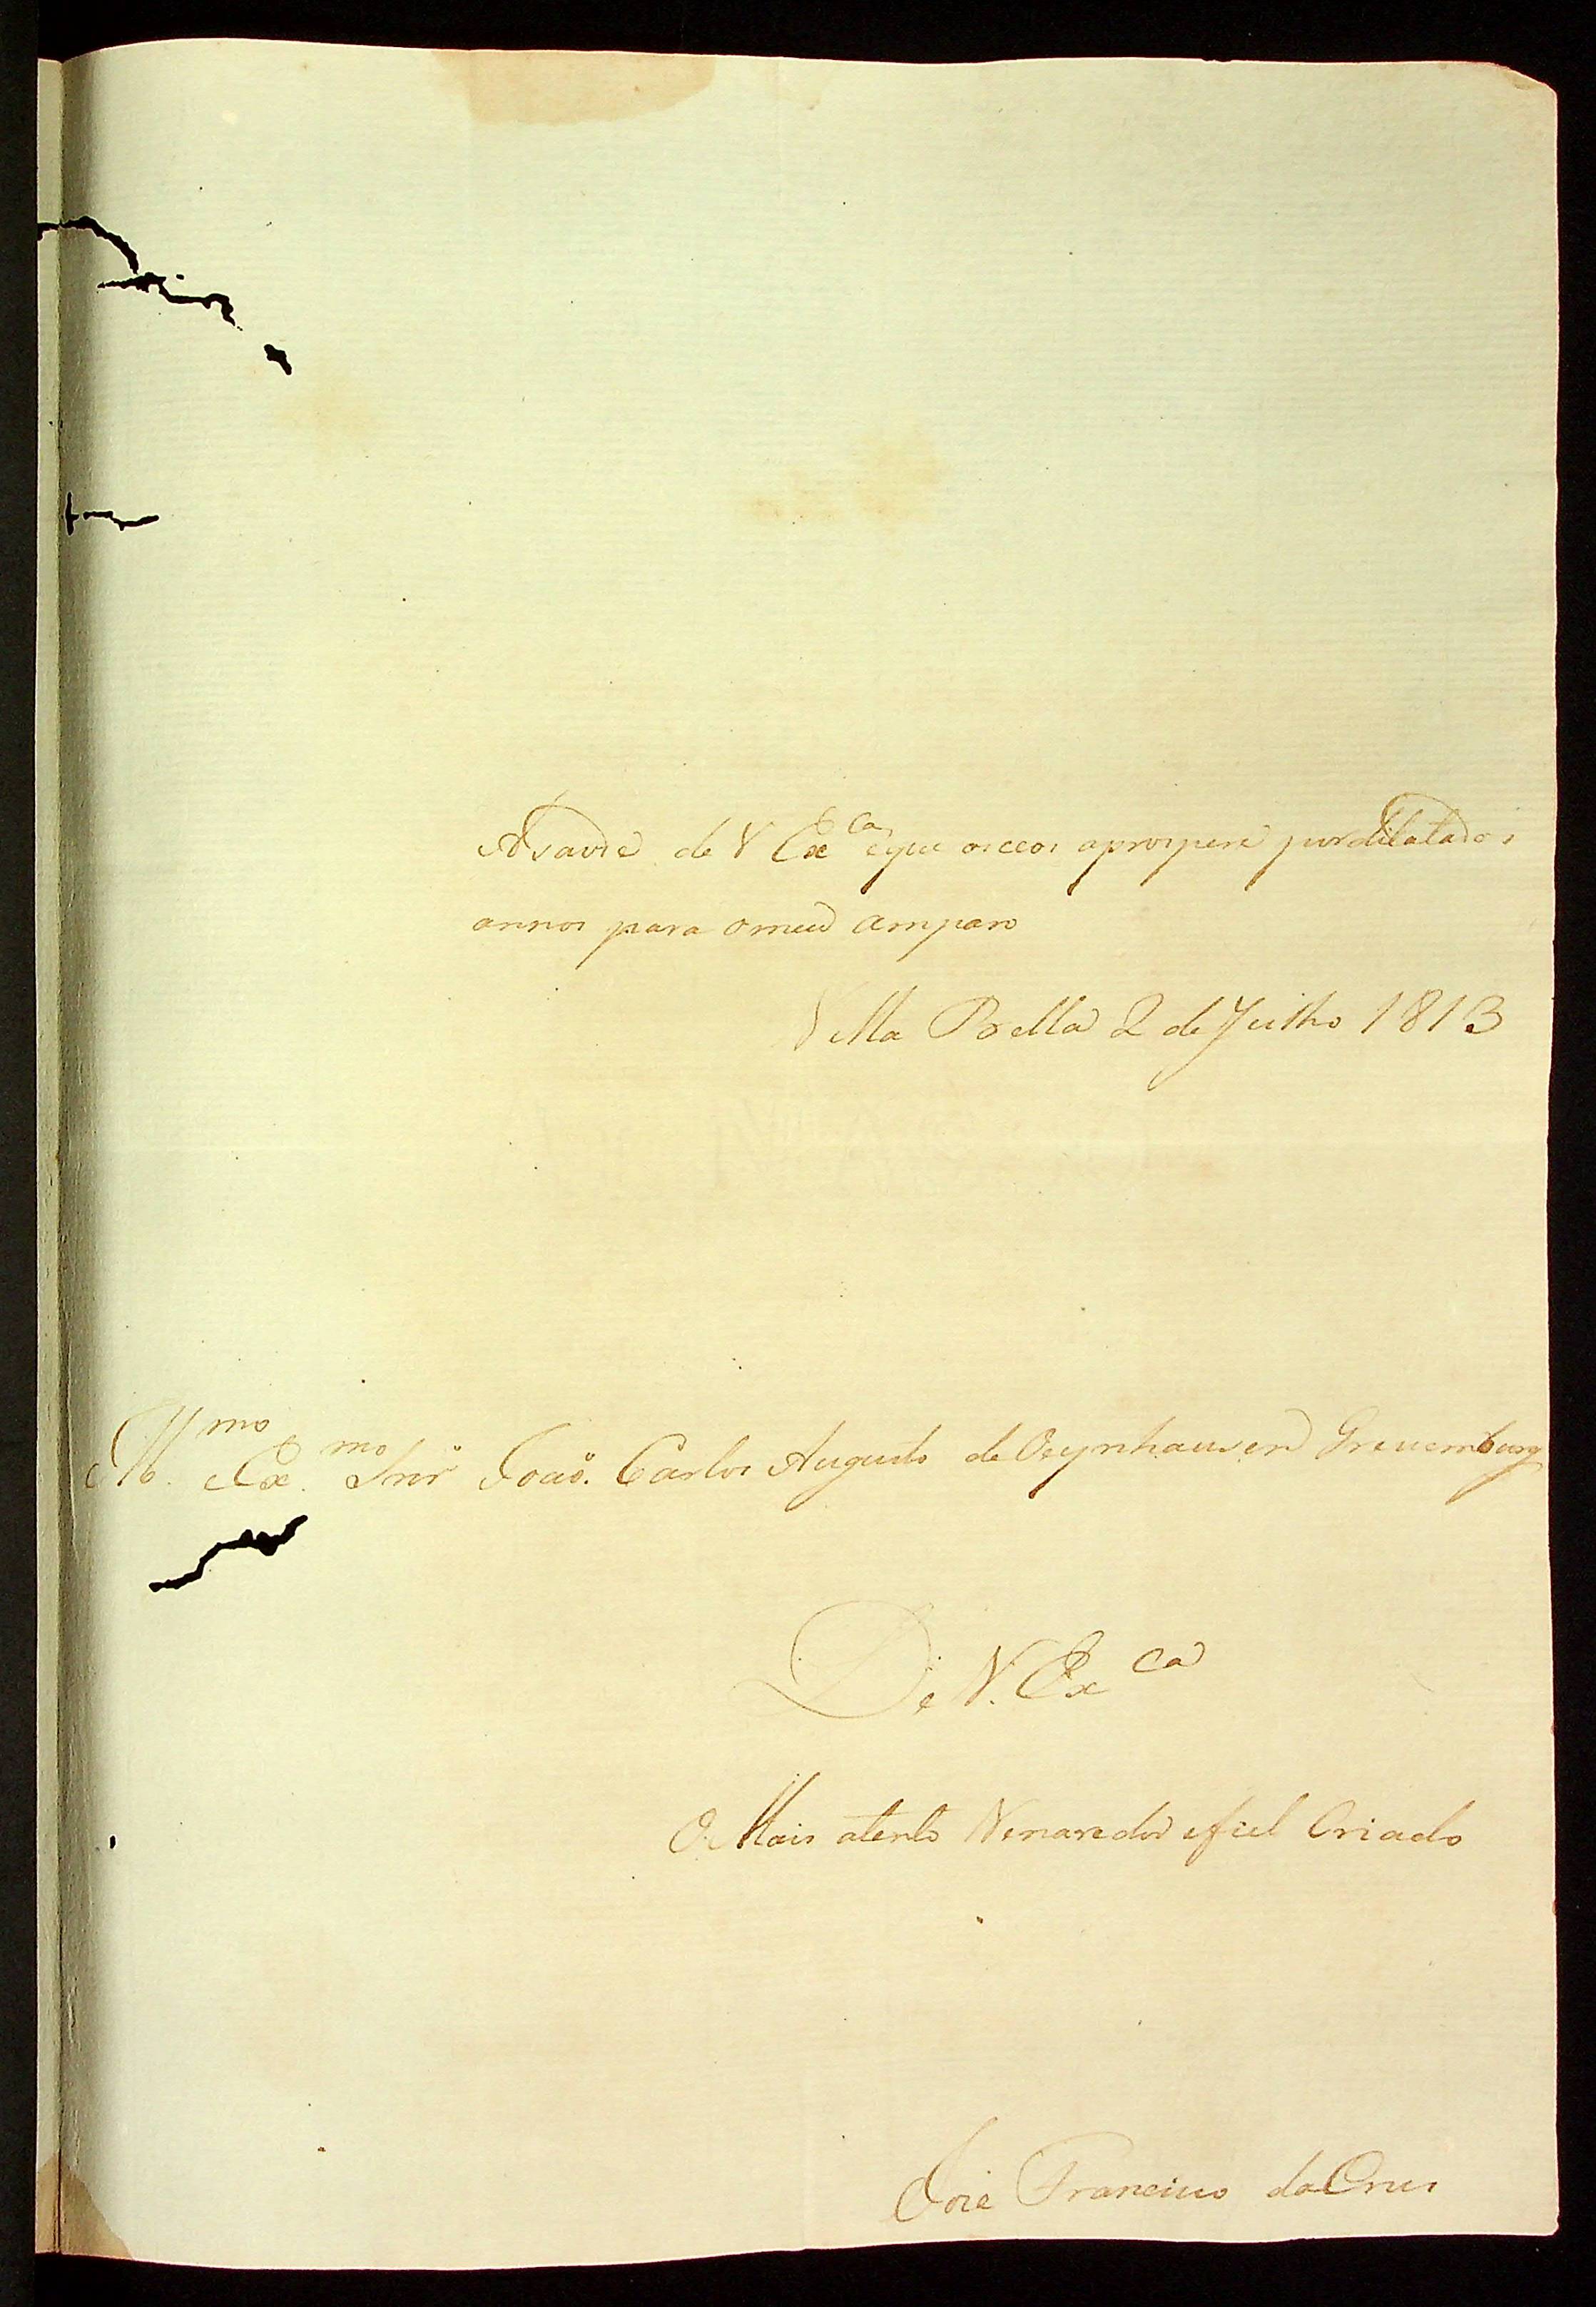 Asaude de V Ex.ca eque osceos aprospere pordilatados
annos para omeu amparo
Villa Bella 2 de Julho 1813
Ill.mo e Ex.mo Snr João. Carlos Augusto de Oeynhausen Grevemburg
De V. Ex.ca
O Mais atento Venarador efiel Criado
Jose Francisco da Crus